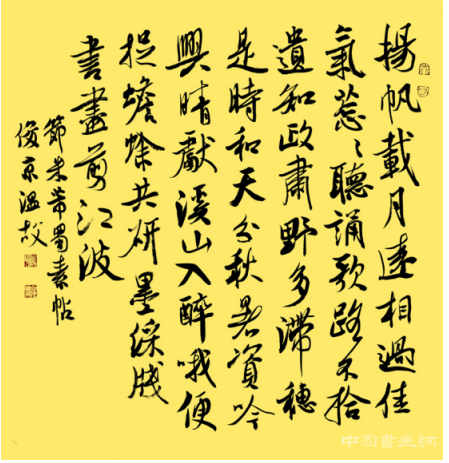 揚帆載月遠相過佳
氣葱々聽誦歌路不拾
遺知政肅野多滯穗
是時和天分秋暑資吟
興晴獻溪山入醉哦便
捉蟾蜍共研墨綵牋
書盡剪江波
節米芾蜀素帖
俊京温故